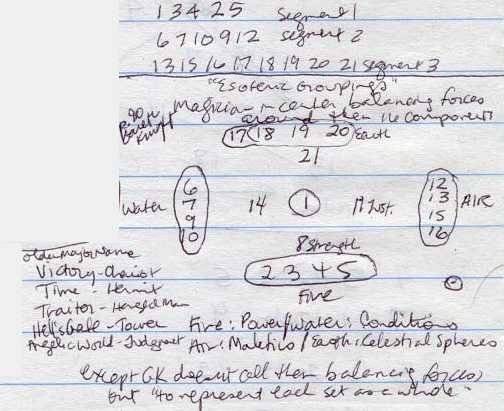 1 3 4 2 5 segment 1
6 7 10 9 12 segment 2
13 15 16 17 18 19 20 21 segment 3
"Esoteric Groupings"
Magician in center balancing forces
around them 16 components
17 18 19 20 Earth
21
Water 6 7 9 10 14 1 11 Just. 12 13 15 16 AIR
8 Strength
2 3 4 5
Fire
older major name
Victory - Chariot
Time - Hermit
Traitor - Hanged Man
Hell's Gate - Tower Fire: Power/Water: Conditions
Angelic World - Judgment Air: Malefics / Earth: Celestial Spheres
except GK doesn't call them balancing forces,
but "to represent each set as a whole"